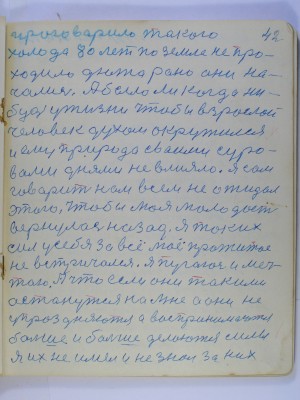 проговарило такого 42
холода 80 лет по земле не про-
ходило дюжа рано они на-
чалися. А было ли когда ни-
будь у жизни чтобы взрослой
человек духом окружился
и ему природа своими суро-
вами днями не влияло. Я сам
говарить нам всем не ожидал
этого, чтобы моя молодост
вернулас назад. Я таких
сил у себя за всё моё прожитое
не встричался. Я пугаюс и меч-
таю. А что если они такими
останутся на мне а они не
упраздняются а воспринимаются
болше и болше делаются силы
Я их не имел и не знал за них